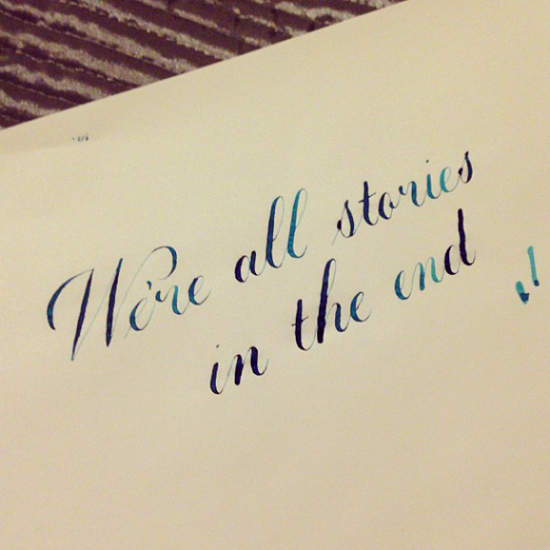 We're all stories
in the end